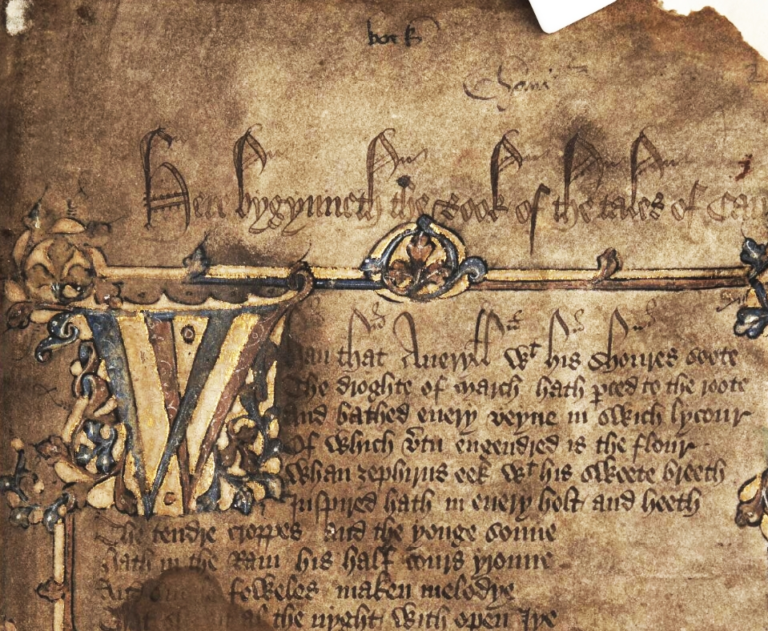 book
Here bygynneth the Book of the tales of Cau
Whan that Aueryll wt his shoures soote
The droghte of march hath pced to the roote
And bathed euery veyne in swich lycour
Of which vtu engendred is the flour
Whan zephirus eek wt his swete breeth
Inspired hath in euery holt and heeth
The tendre croppes and the yonge sonne
Hath in the Ram his half cours yronne
And foweles maken melodye
al the nyght with open Iye